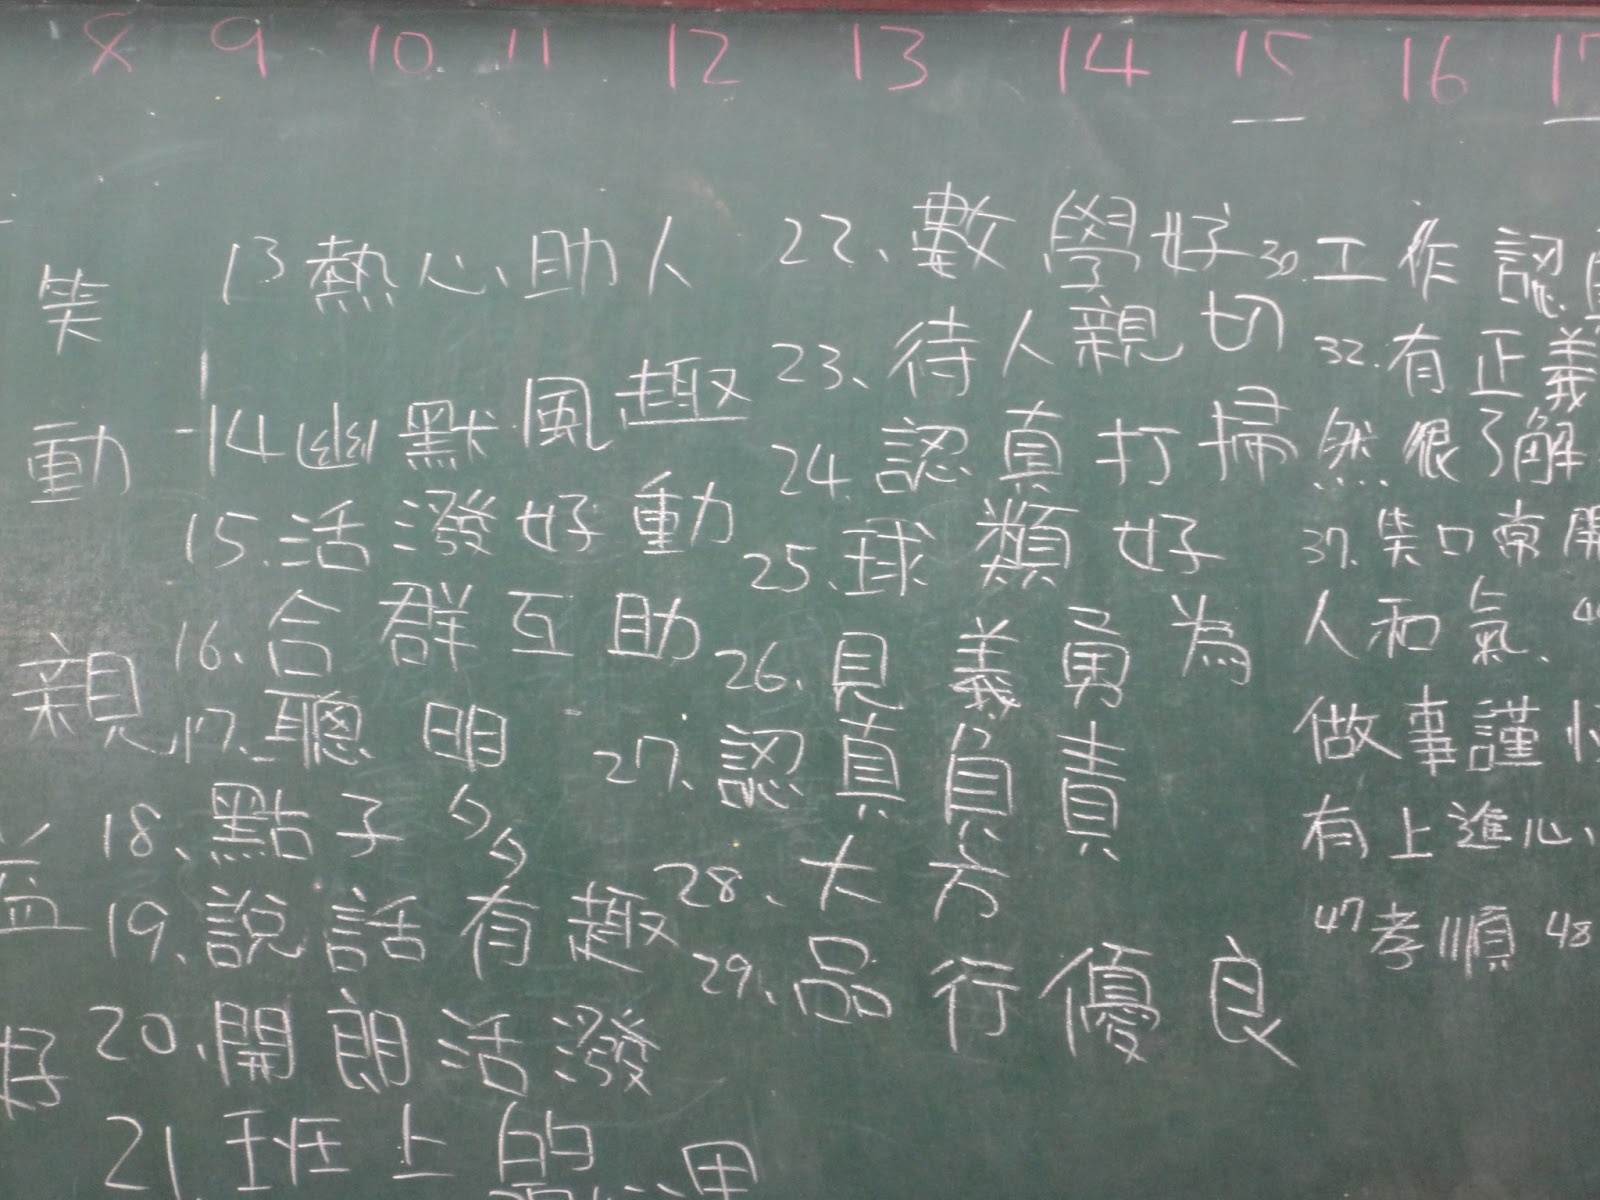 8 9 10 11 12 13 14 15 16 17
笑
動
親
益
好
13 熱心助人
14 幽默風趣
15. 活潑好動
16. 合群互助
17. 聰明
18. 點子多
19. 說話有趣
20. 開朗活潑
21. 班上的
22. 數學好
23. 待人親切
24. 認真打掃
25. 球類好
26. 見義勇為
27. 認真負責
28. 大方
29. 品行優良
30. 工作認
32. 有正義
然 很了解
37. 笑口常開
人和氣、
做事謹
有上進心、
47 孝順 48